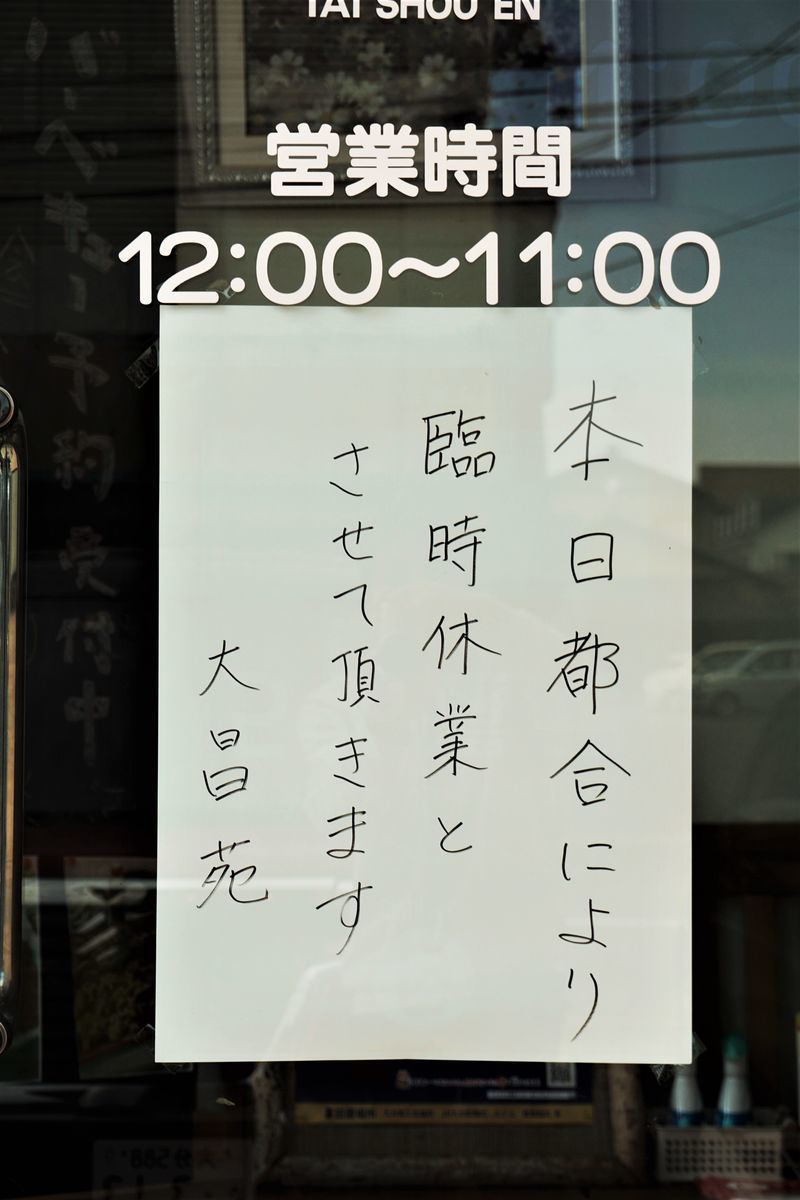 TAI SHOU EN
営業時間
12:00~11:00
本日都合により
臨時休業と
させて頂きます
大昌苑
バーベキュー予約受付中